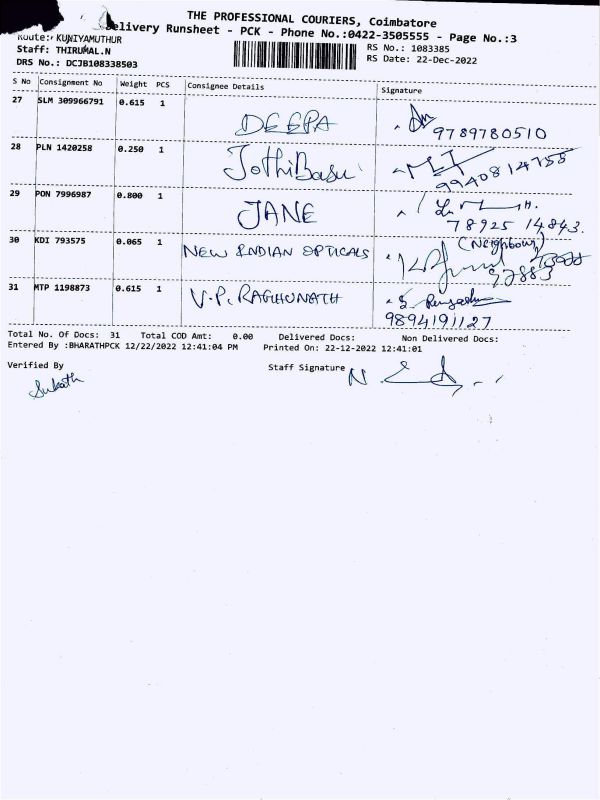 THE PROFESSIONAL COURIERS, Coimbatore
Delivery Runsheet - PCK - Phone No.:0422-3505555 - Page No.:3
Route: KUNIYAMUTHUR
Staff: THIRUMAL.N
DRS No.: DCJB108338503
RS No.: 1083385
RS Date: 22-Dec-2022
S No Consignment No Weight PCS Consignee Details Signature
27 SLM 309966791 0.615 1 DEEPA 9789780510
28 PLN 1420258 0.250 1 JothiBasu 9940814758
29 PON 7996987 0.800 1 JANE 78925 14843.
(Neighbour)
30 KDI 793575 0.065 1 NEW INDIAN OPTICALS
31 MTP 1198873 0.615 1 V.P. RAGHUNATH
9894191127
Total No. Of Docs: 31 Total COD Amt: 0.00 Delivered Docs: Non Delivered Docs:
Entered By :BHARATHPCK 12/22/2022 12:41:04 PM Printed On: 22-12-2022 12:41:01
Verified By Staff Signature